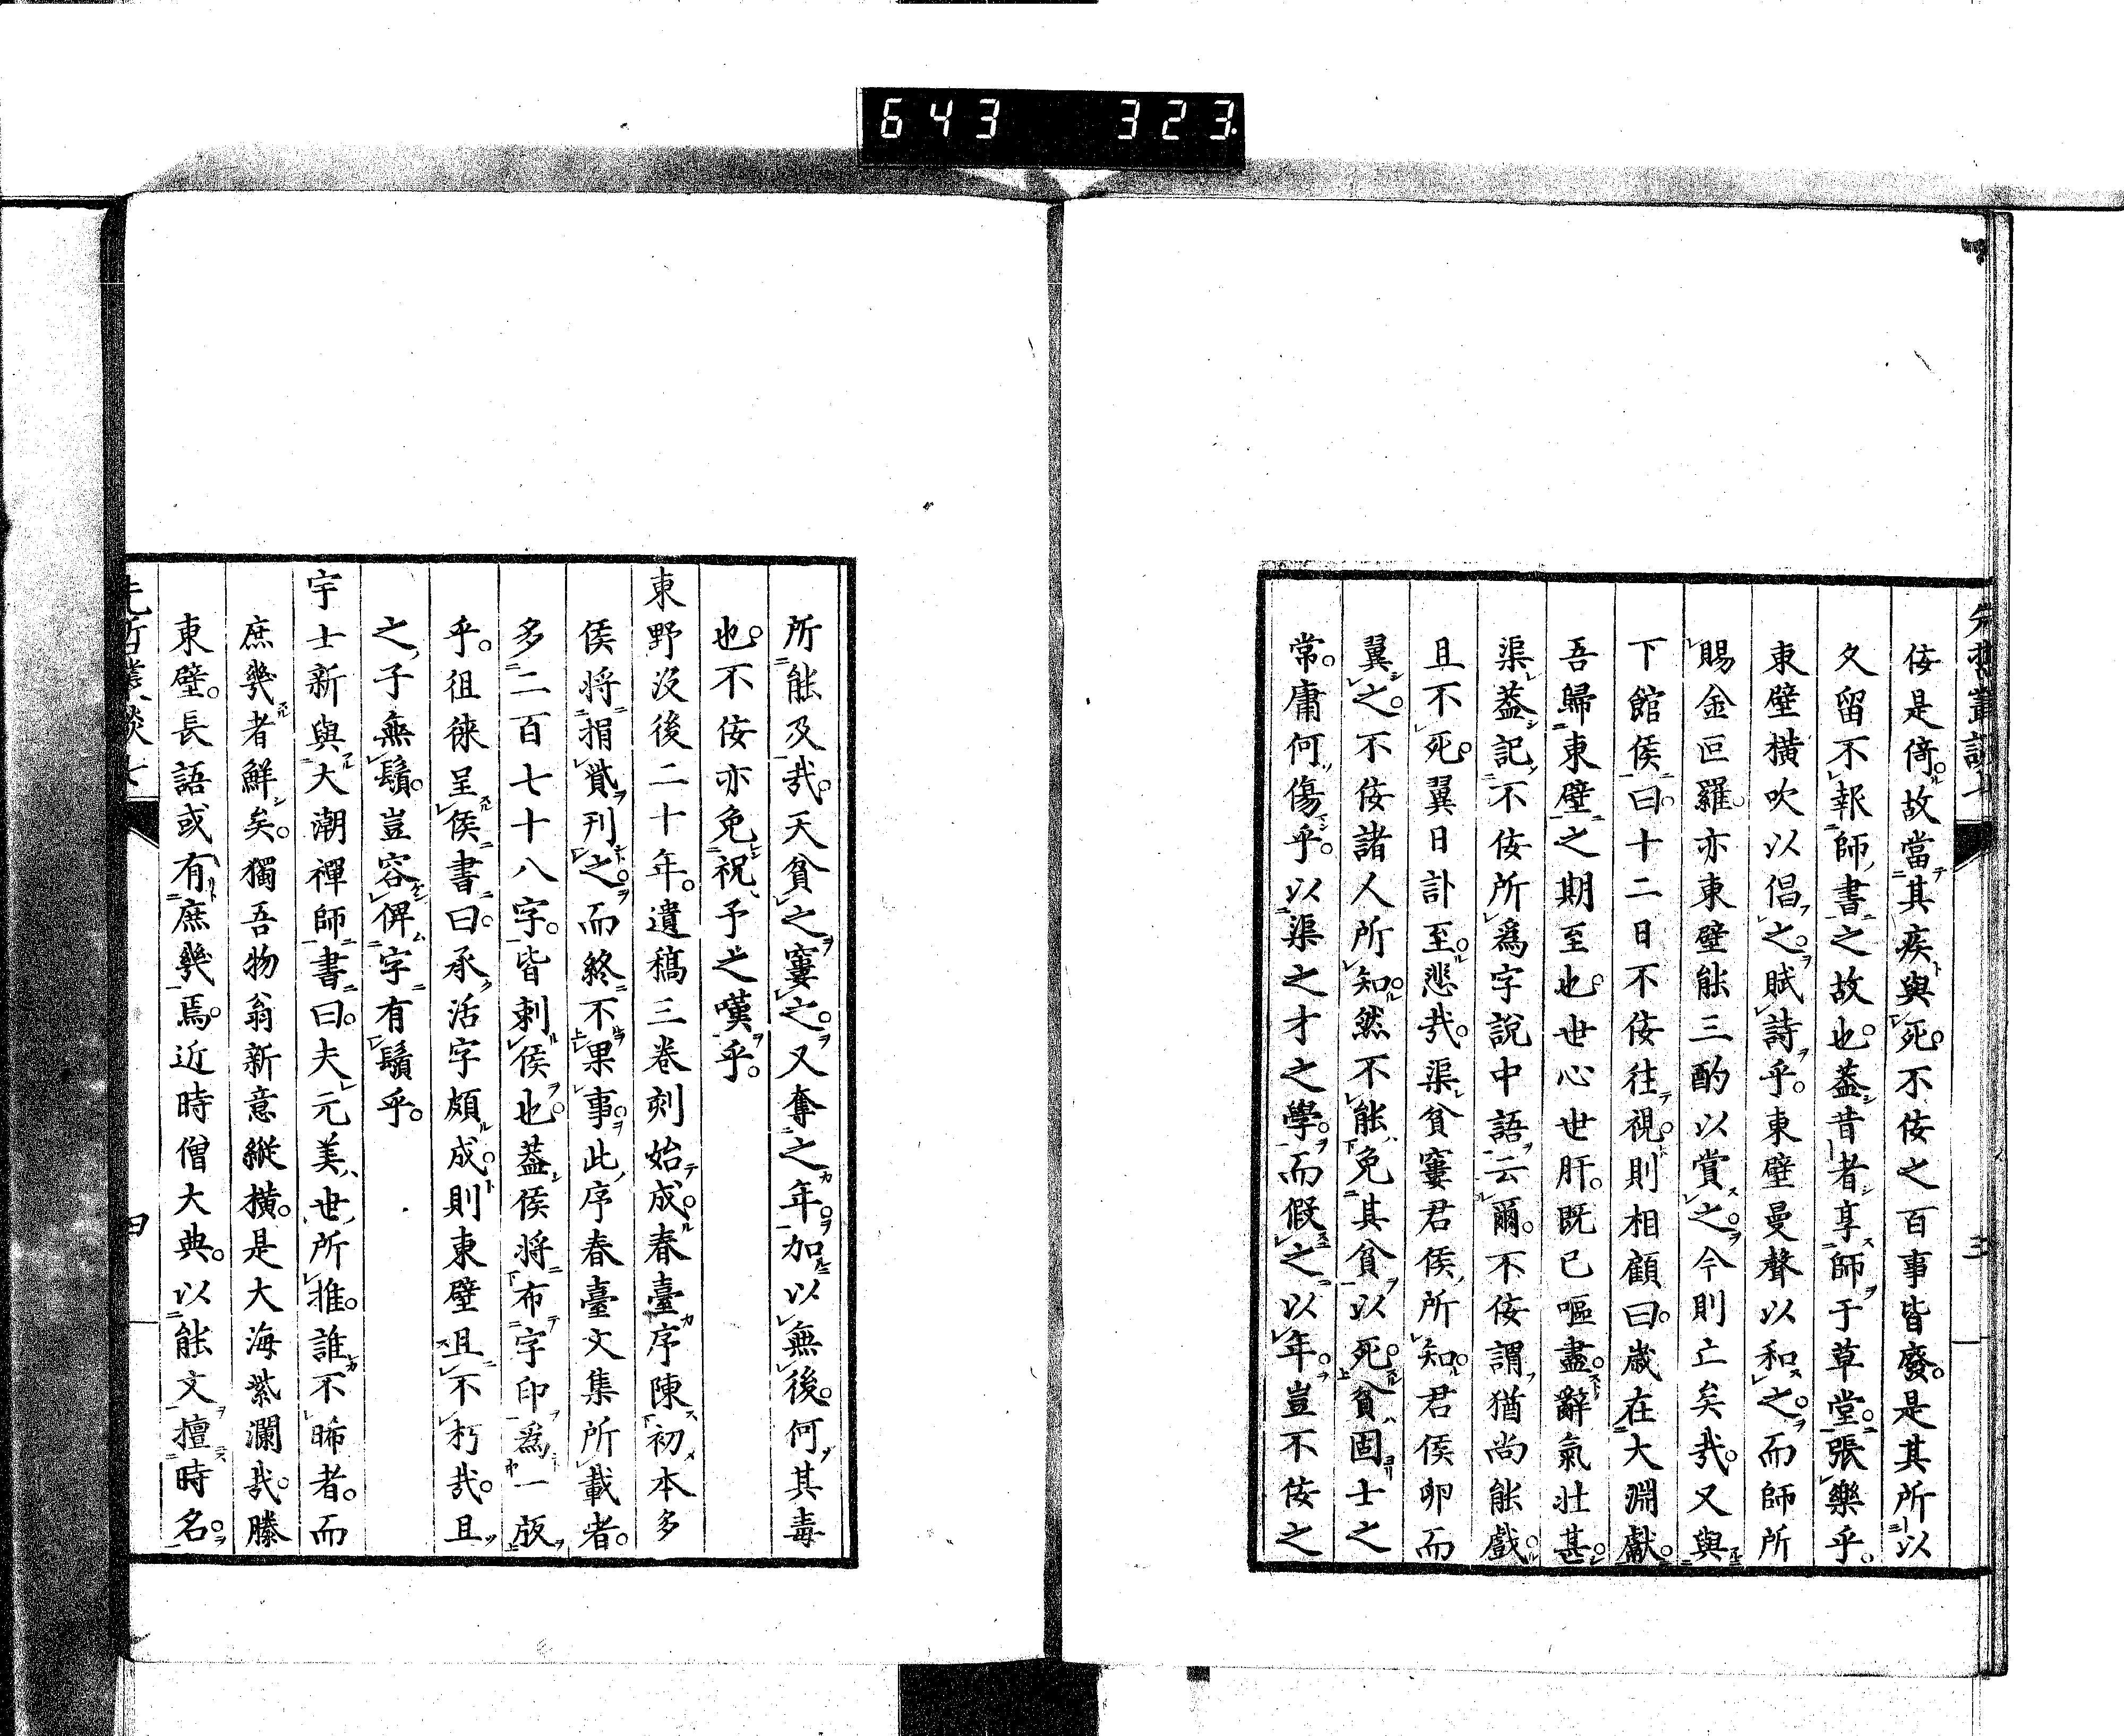 643 323
侫是倚。故當其疾與死。不侫之百事皆廢。是其所以
久留不報師書之故也。蓋昔者享師于草堂。張樂乎。
東壁橫吹以倡之。賦詩乎。東壁曼聲以和之。而師所
賜金叵羅。亦東壁能三酌以賞之。今則亡矣哉。又與
下館侯曰。十二日不侫往視。則相顧曰。歲在大淵獻。
吾歸東壁之期至也。世心世肝。既已嘔盡。辭氣壯甚。
渠蓋記不侫所爲字說中語云爾。不侫謂猶尚能戲。
且不死。翼日訃至。悲哉。渠貧窶君侯所知。君侯卵而
翼之。不侫諸人所知。然不能免其貧以死。貧固士之
常。庸何傷乎。以渠之才之學。而假之以年。豈不侫之
所能及哉。天貧之窶之。又奪之年。加以無後。何其毒
也。不侫亦免祝予之嘆乎。
東野沒後二十年。遺稿三卷刻始成。春臺序陳初本多
侯將捐貲刊之。而終不果事。此序春臺文集所載者。
多二百七十八字。皆刺侯也。蓋侯將布字印爲一版
乎。徂徠呈侯書曰。承活字頗成。則東壁且不朽哉。且
之子無鬚。豈容俾字有鬚乎。
宇士新與大潮禪師書曰。夫元美世所推。誰不睎者。而
庶幾者鮮矣。獨吾物翁新意縱橫。是大海紫瀾哉。滕
東壁。長語或有庶幾焉。近時僧大典。以能文擅時名。
先哲叢談七